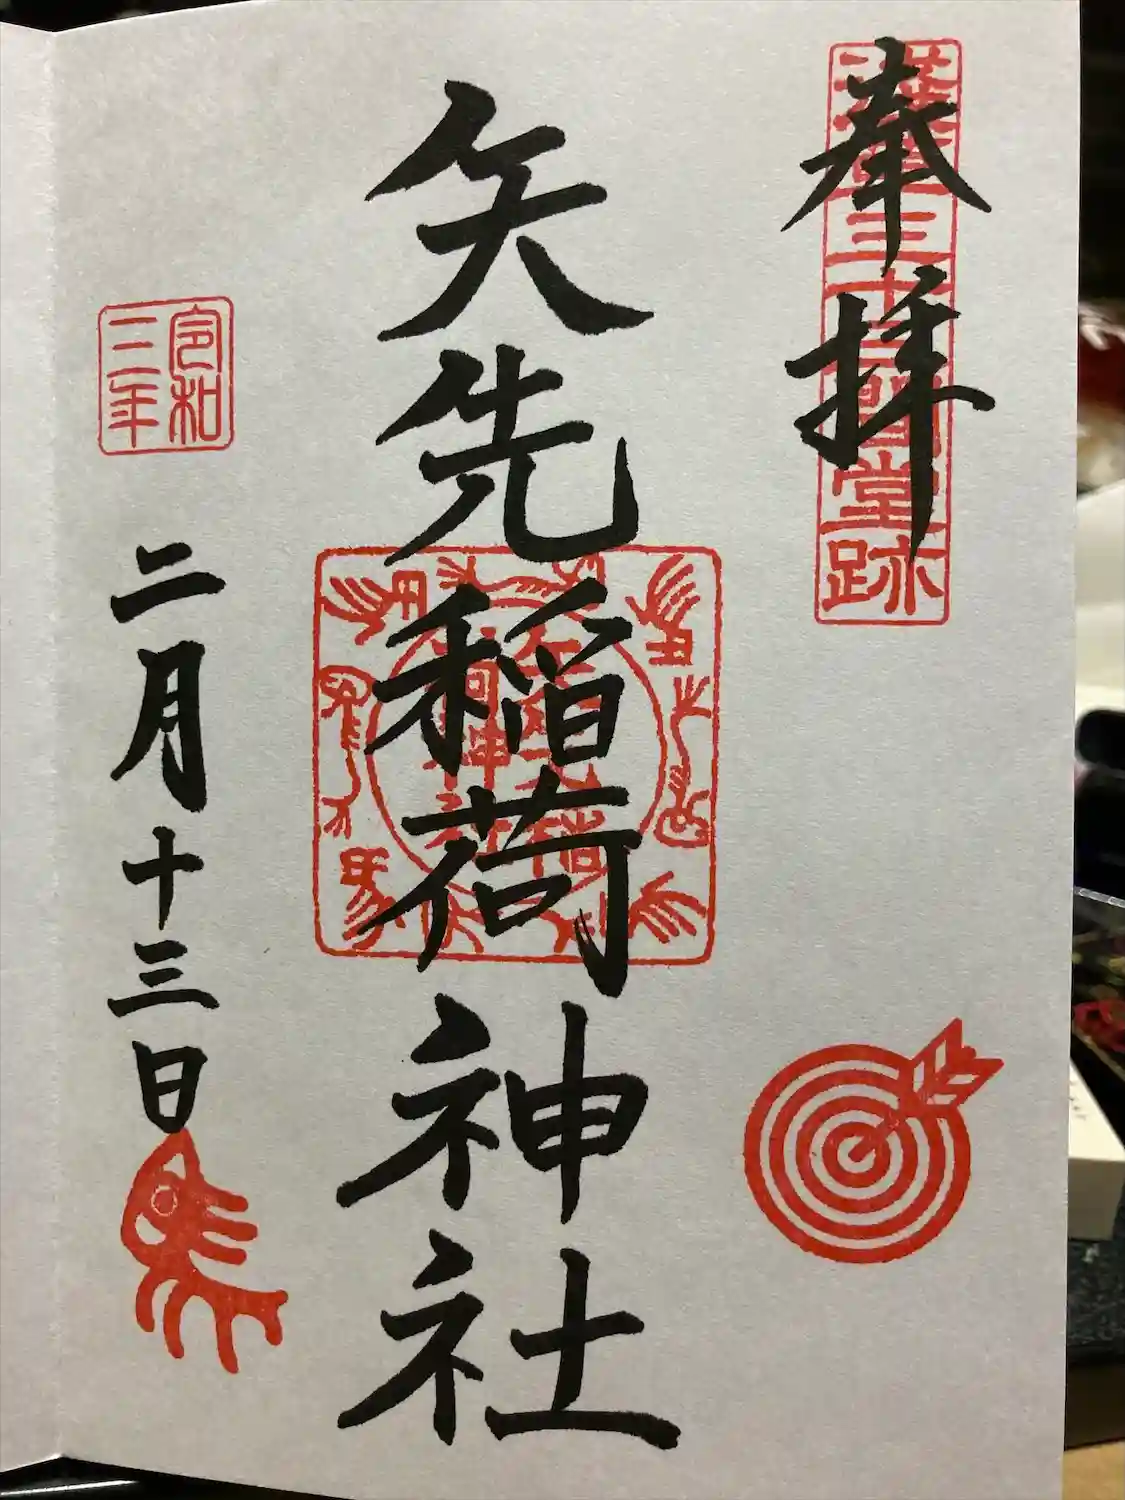 奉拝
浅草三十三間堂跡
矢先稲荷神社
令和
三年
二月十三日